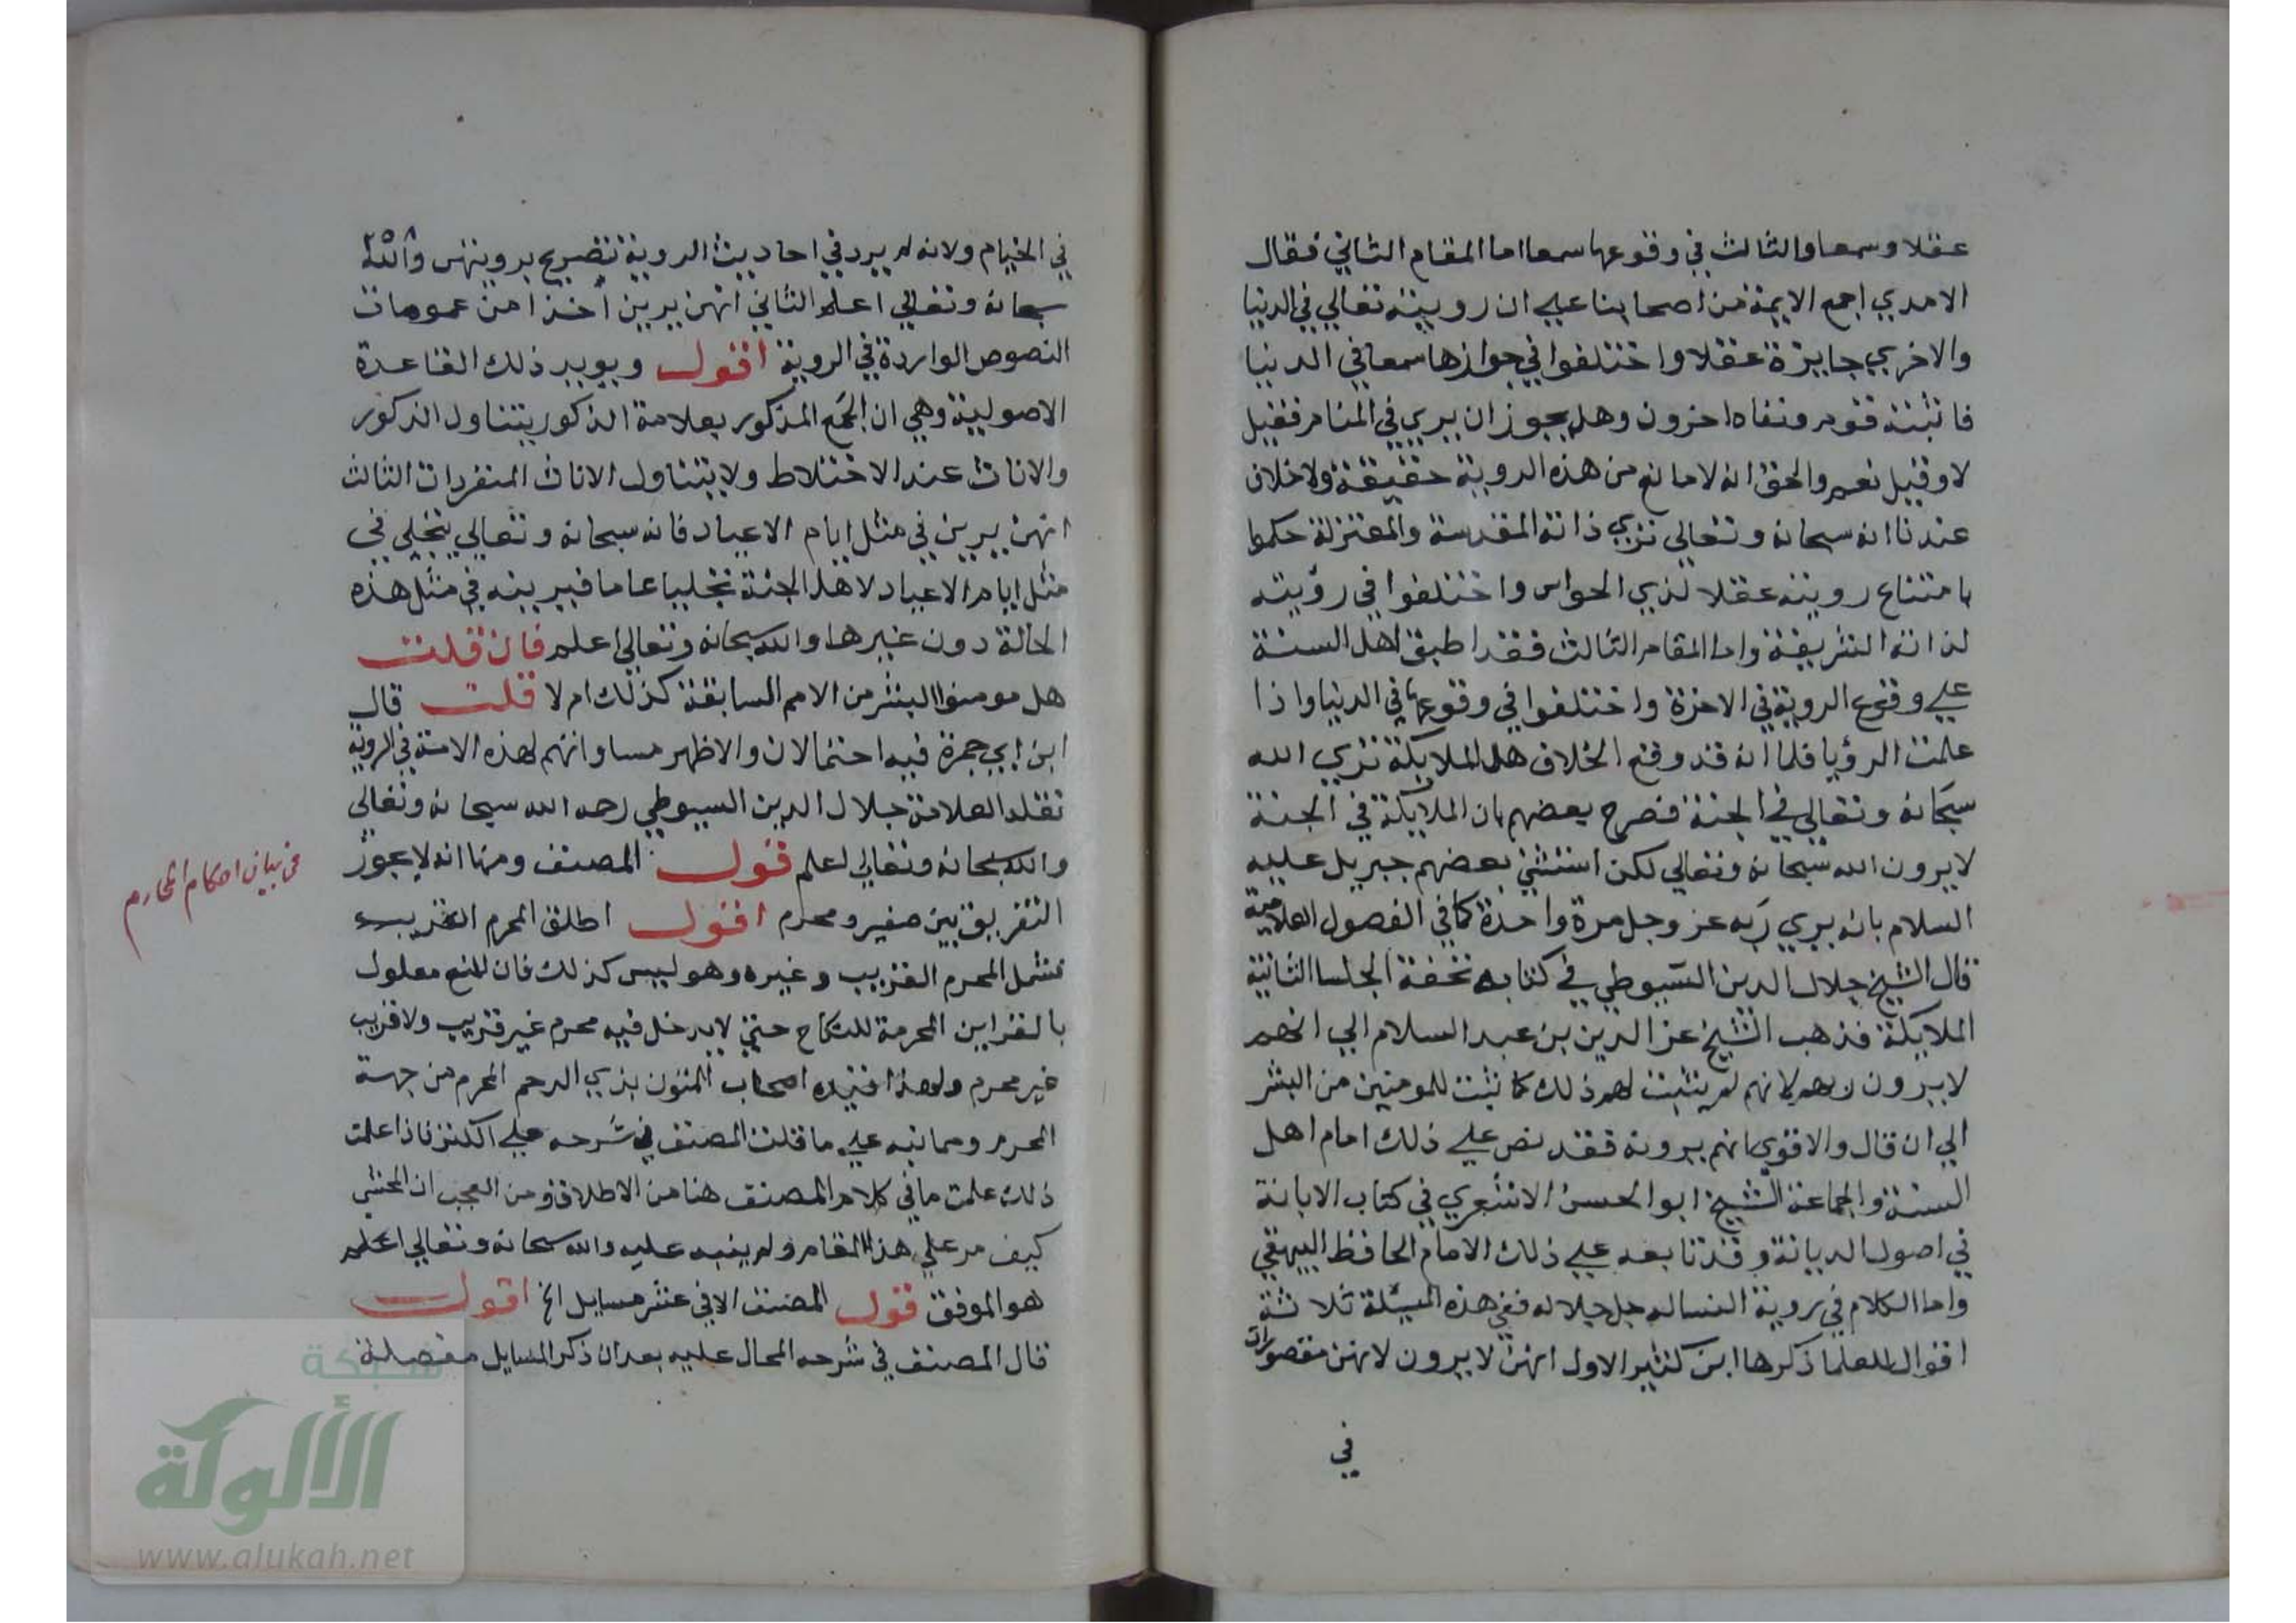 عقلا وسمعا والثالث في وقوعها سمعا اما المقام الثاني فقال
الامدي اجمع الايمة من اصحابنا علي ان رويته تعالي في الدنيا
والاخري جايزة عقلا واختلفوا في جوازها سمعا في الدنيا
فاثبته قوم ونفاه اخرون وهل يجوز ان يري في المنام فقيل
لا وقيل نعم والحق انه لا مانع من هذه الروية حقيقة ولا خلاف
عندنا انه سبحانه وتعالي تري ذاته المقدسة والمعتزلة حكموا
بامتناع رويته عقلا لذي الحواس واختلفوا في رؤيته
لذاته الشريفة واما المقام الثالث فقد اطبق اهل السنة
علي وقوع الروية في الاخرة واختلفوا في وقوعها في الدنيا واذا
علمت الرؤيا قلنا انه قد وقع الخلاف هل الملايكة تري الله
سبحانه وتعالي في الجنة فصرح بعضهم بان الملايكة في الجنة
لا يرون الله سبحانه وتعالي لكن استثني بعضهم جبريل عليه
السلام بانه يري ربه عز وجل مرة واحدة كما في الفصول العلامية
قال الشيخ جلال الدين السيوطي في كتابه تحفة الجلسا الثانية
الملايكة فذهب الشيخ عز الدين بن عبد السلام الي انهم
لا يرون ربهم لانهم لم يثبت لهم ذلك كما ثبت للمومنين من البشر
الي ان قال والاقوي انهم يرونه فقد نص علي ذلك امام اهل
السنة والجماعة الشيخ ابو الحسن الاشعري في كتاب الابانة
في اصول الديانة وقد تابعه علي ذلك الامام الحافظ البيهقي
واما الكلام في روية النسا له جل جلاله ففي هذه المسئلة ثلاثة
اقوال للعلما ذكرها ابن كثير الاول انهن لا يرون لانهن مقصورات
في
٢٥٨
في الخيام ولانه لم يرد في احاديث الروية تصريح برويتهن والله
سبحانه وتعالي اعلم الثاني انهن يرين اخذا من عمومات
النصوص الواردة في الروية اقول ويويد ذلك القاعدة
الاصولية وهي ان الجمع المذكور بعلامة الذكور يتناول الذكور
والاناث عند الاختلاط ولا يتناول الاناث المنفردات الثالث
انهن يرين في مثل ايام الاعياد فانه سبحانه وتعالي يتجلي في
مثل ايام الاعياد لاهل الجنة تجليا عاما فيرينه في مثل هذه
الحالة دون غيرها والله سبحانه وتعالي اعلم فان قلت
هل مومنوا البشر من الامم السابقة كذلك ام لا قلت قال
ابن ابي جمرة فيه احتمالان والاظهر مساواتهم لهذه الامة في الروية
نقله العلامة جلال الدين السيوطي رحمه الله سبحانه وتعالي
والله سبحانه وتعالي اعلم قول المصنف ومنها انه لا يجوز
التفريق بين صغير ومحرم اقول اطلق المحرم القريب
فشمل المحرم القريب وغيره وهو ليس كذلك فان المنع معلول
بالقرابة المحرمة للنكاح حتي لا يدخل فيه محرم غير قريب ولا قريب
غير محرم ولهذا قيده اصحاب المتون بذي الرحم المحرم من جهة
المحرم ومما نبه علي ما قلت المصنف في شرحه علي الكنز فاذا علمت
ذلك علمت ما في كلام المصنف هنا من الاطلاق ومن العجب ان المحشي
كيف مر علي هذا المقام ولم ينبه عليه والله سبحانه وتعالي اعلم
هو الموفق قول المصنف الا في عشر مسايل الخ اقول
قال المصنف في شرحه المحال عليه بعد ان ذكر المسايل مفصلة
في بيان احكام المحارم
شبكة
الألوكة
www.alukah.net